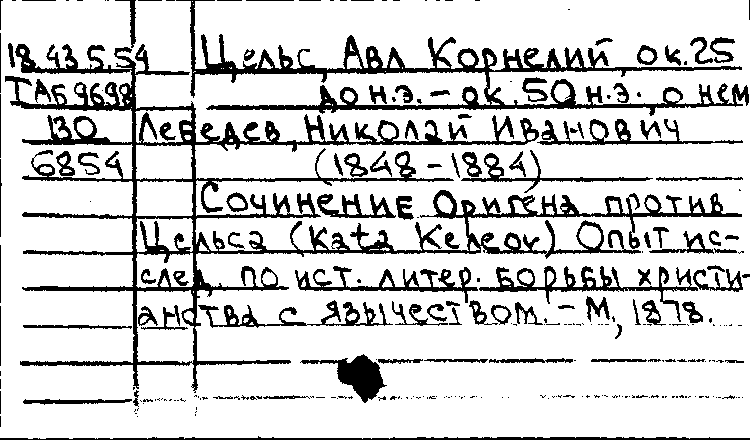 18.43.5.54 Цельс, Авл Корнелий, ок. 25
ТАБ9698 до н.э. – ок. 50 н.э., о нем
130 Лебедев, Николай Иванович
6854 (1848–1884)
Сочинение Оригена против
Цельса (Kata Keлeov) Опыт ис-
след. по ист. литер. борьбы христи-
анства с язычеством. – М., 1878.